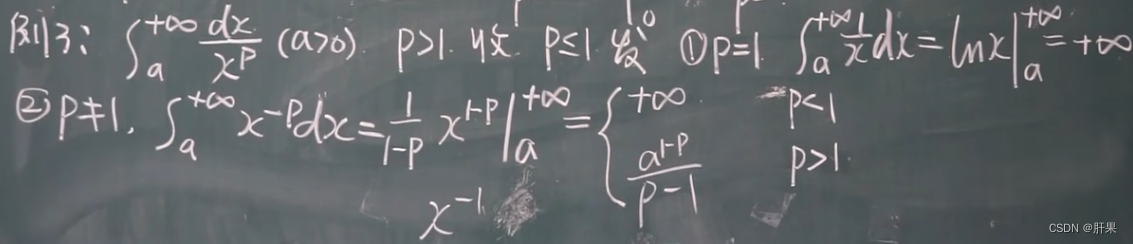 例3: ∫_a^{+∞} dx/x^p (a>0). p>1. 收. p≤1 发 ①p=1. ∫_a^{+∞} 1/x dx = ln x |_a^{+∞} = +∞
②p≠1. ∫_a^{+∞} x^{-p}dx = 1/(1-p) x^{1-p} |_a^{+∞} = { +∞ p<1
a^{1-p}/(p-1) p>1.
x^{-1}
CSDN @肝果